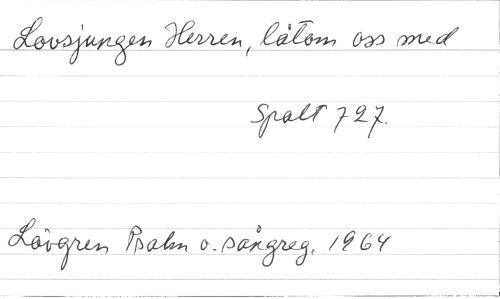 Lovsjungen Herren, låtom oss med
Spalt 727.
Lövgren Psalm o. sångreg. 1964